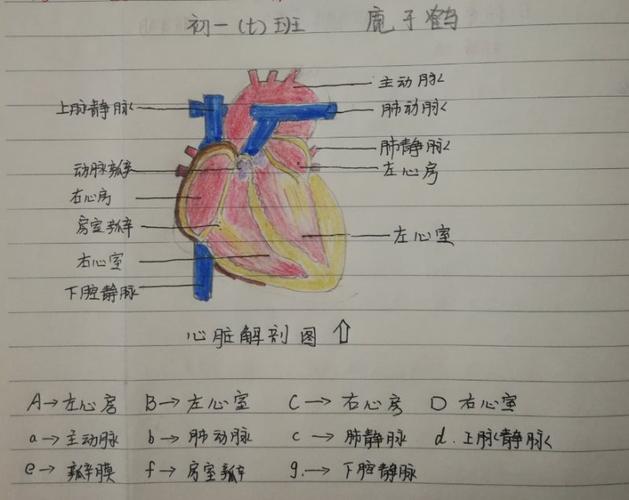 初一(七)班 鹿子鹤
主动脉
上脉静脉 肺动脉
肺静脉
动脉瓣 左心房
右心房
房室瓣
左心室
右心室
下腔静脉
心脏解剖图 ⇧
A→左心房 B→左心室 C→右心房 D 右心室
a→主动脉 b→肺动脉 c→肺静脉 d.上脉静脉
e→瓣膜 f→房室瓣 g.→下腔静脉